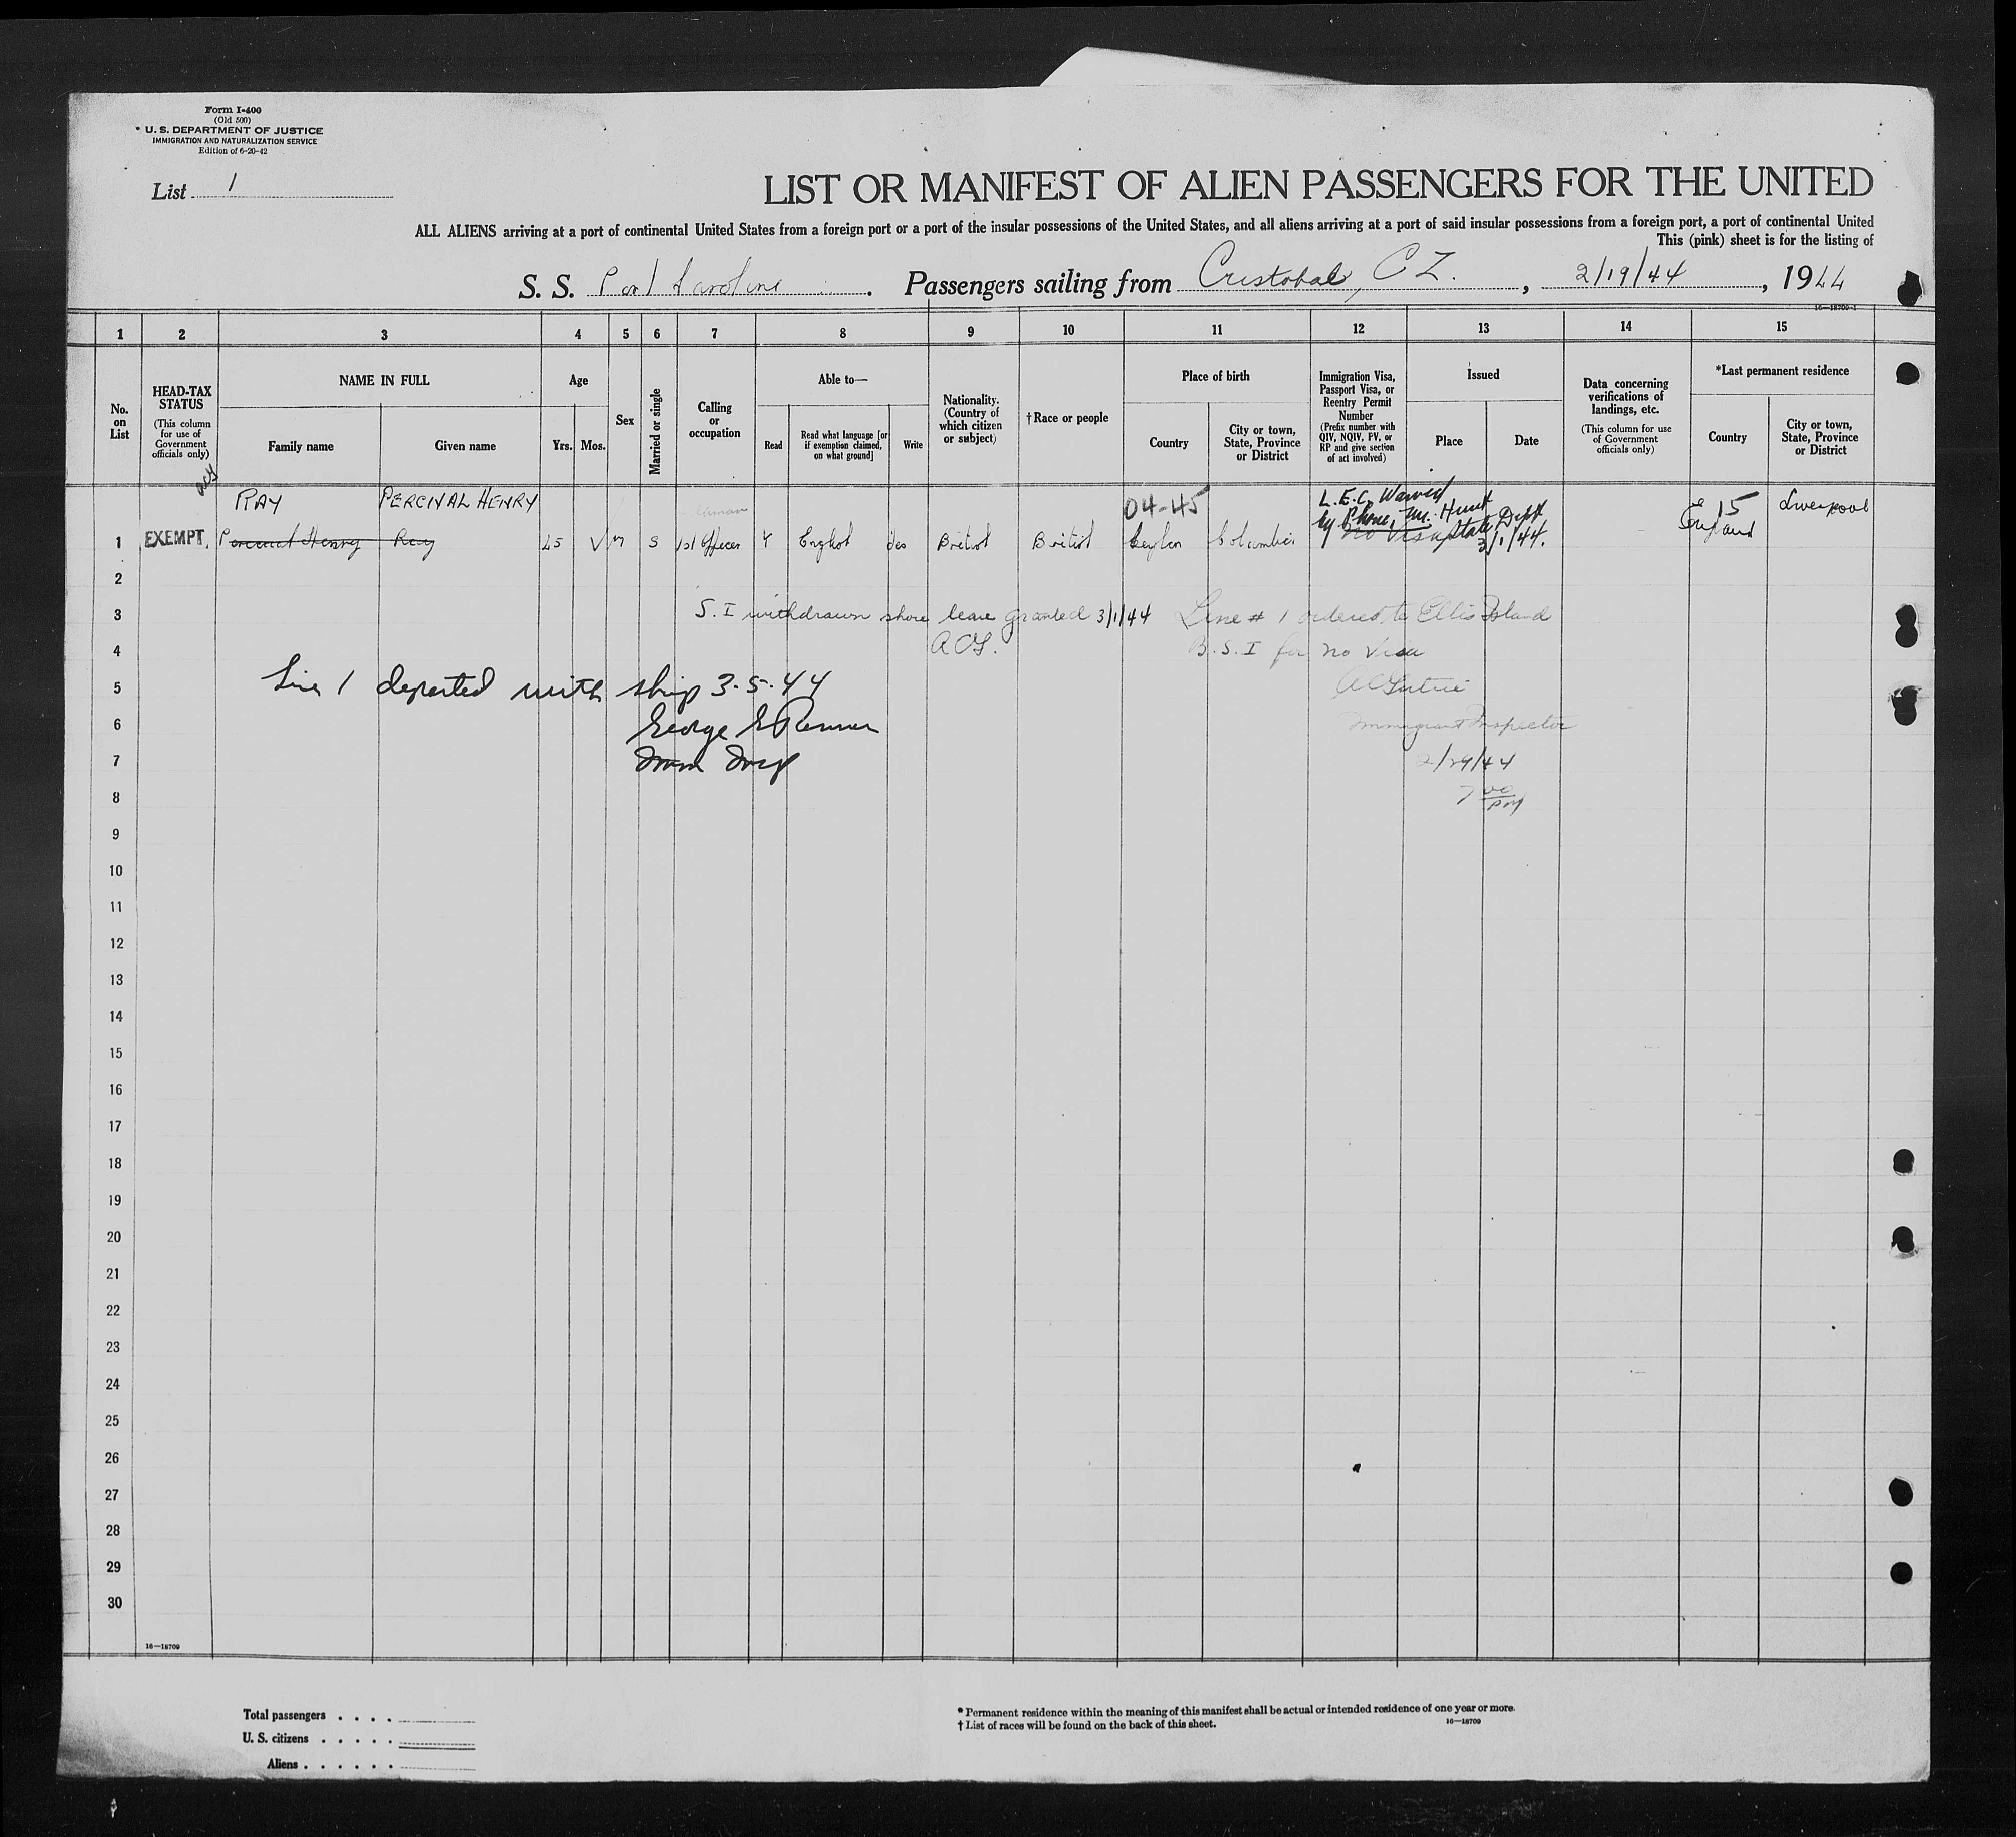 Form I-400
(Old 500)
U. S. DEPARTMENT OF JUSTICE
IMMIGRATION AND NATURALIZATION SERVICE
Edition of 6-20-42
List 1
LIST OR MANIFEST OF ALIEN PASSENGERS FOR THE UNITED
ALL ALIENS arriving at a port of continental United States from a foreign port or a port of the insular possessions of the United States, and all aliens arriving at a port of said insular possessions from a foreign port, a port of continental United
This (pink) sheet is for the listing of
S. S. Port Caroline. Passengers sailing from Cristobal, C Z., 2/19/44, 1944
16—18709-1
1 2 3 4 5 6 7 8 9 10 11 12 13 14 15
No. on List
HEAD-TAX STATUS
(This column for use of Government officials only)
NAME IN FULL
Family name
Given name
Age
Yrs. Mos.
Sex
Married or single
Calling or occupation
Able to—
Read
Read what language [or if exemption claimed, on what ground]
Write
Nationality. (Country of which citizen or subject)
†Race or people
Place of birth
Country
City or town, State, Province or District
Immigration Visa, Passport Visa, or Reentry Permit Number
(Prefix number with QIV, NQIV, PV, or RP and give section of act involved)
Issued
Place
Date
Data concerning verifications of landings, etc.
(This column for use of Government officials only)
*Last permanent residence
Country
City or town, State, Province or District
RAY PERCIVAL HENRY 04-45 L.E.C. Waived 15 Liverpool
by Phone, Mr. Hunt
1 EXEMPT. Percival Henry Ray 45 M S 1st Officer Y English Yes British British Ceylon no Visa State Dept 3/1/44. England
2
3 S. I withdrawn shore leave granted 3/1/44 Line # 1 ordered to Ellis Island
4 B. S. I for no Visa
5 Line 1 departed with ship 3-5-44
6 George E Immigrant Inspector
7 2/29/44
8 7 00 PM
9
10
11
12
13
14
15
16
17
18
19
20
21
22
23
24
25
26
27
28
29
30
16—18709
Total passengers . . . .
U. S. citizens . . . . .
Aliens . . . . . .
* Permanent residence within the meaning of this manifest shall be actual or intended residence of one year or more.
† List of races will be found on the back of this sheet.
16—18709